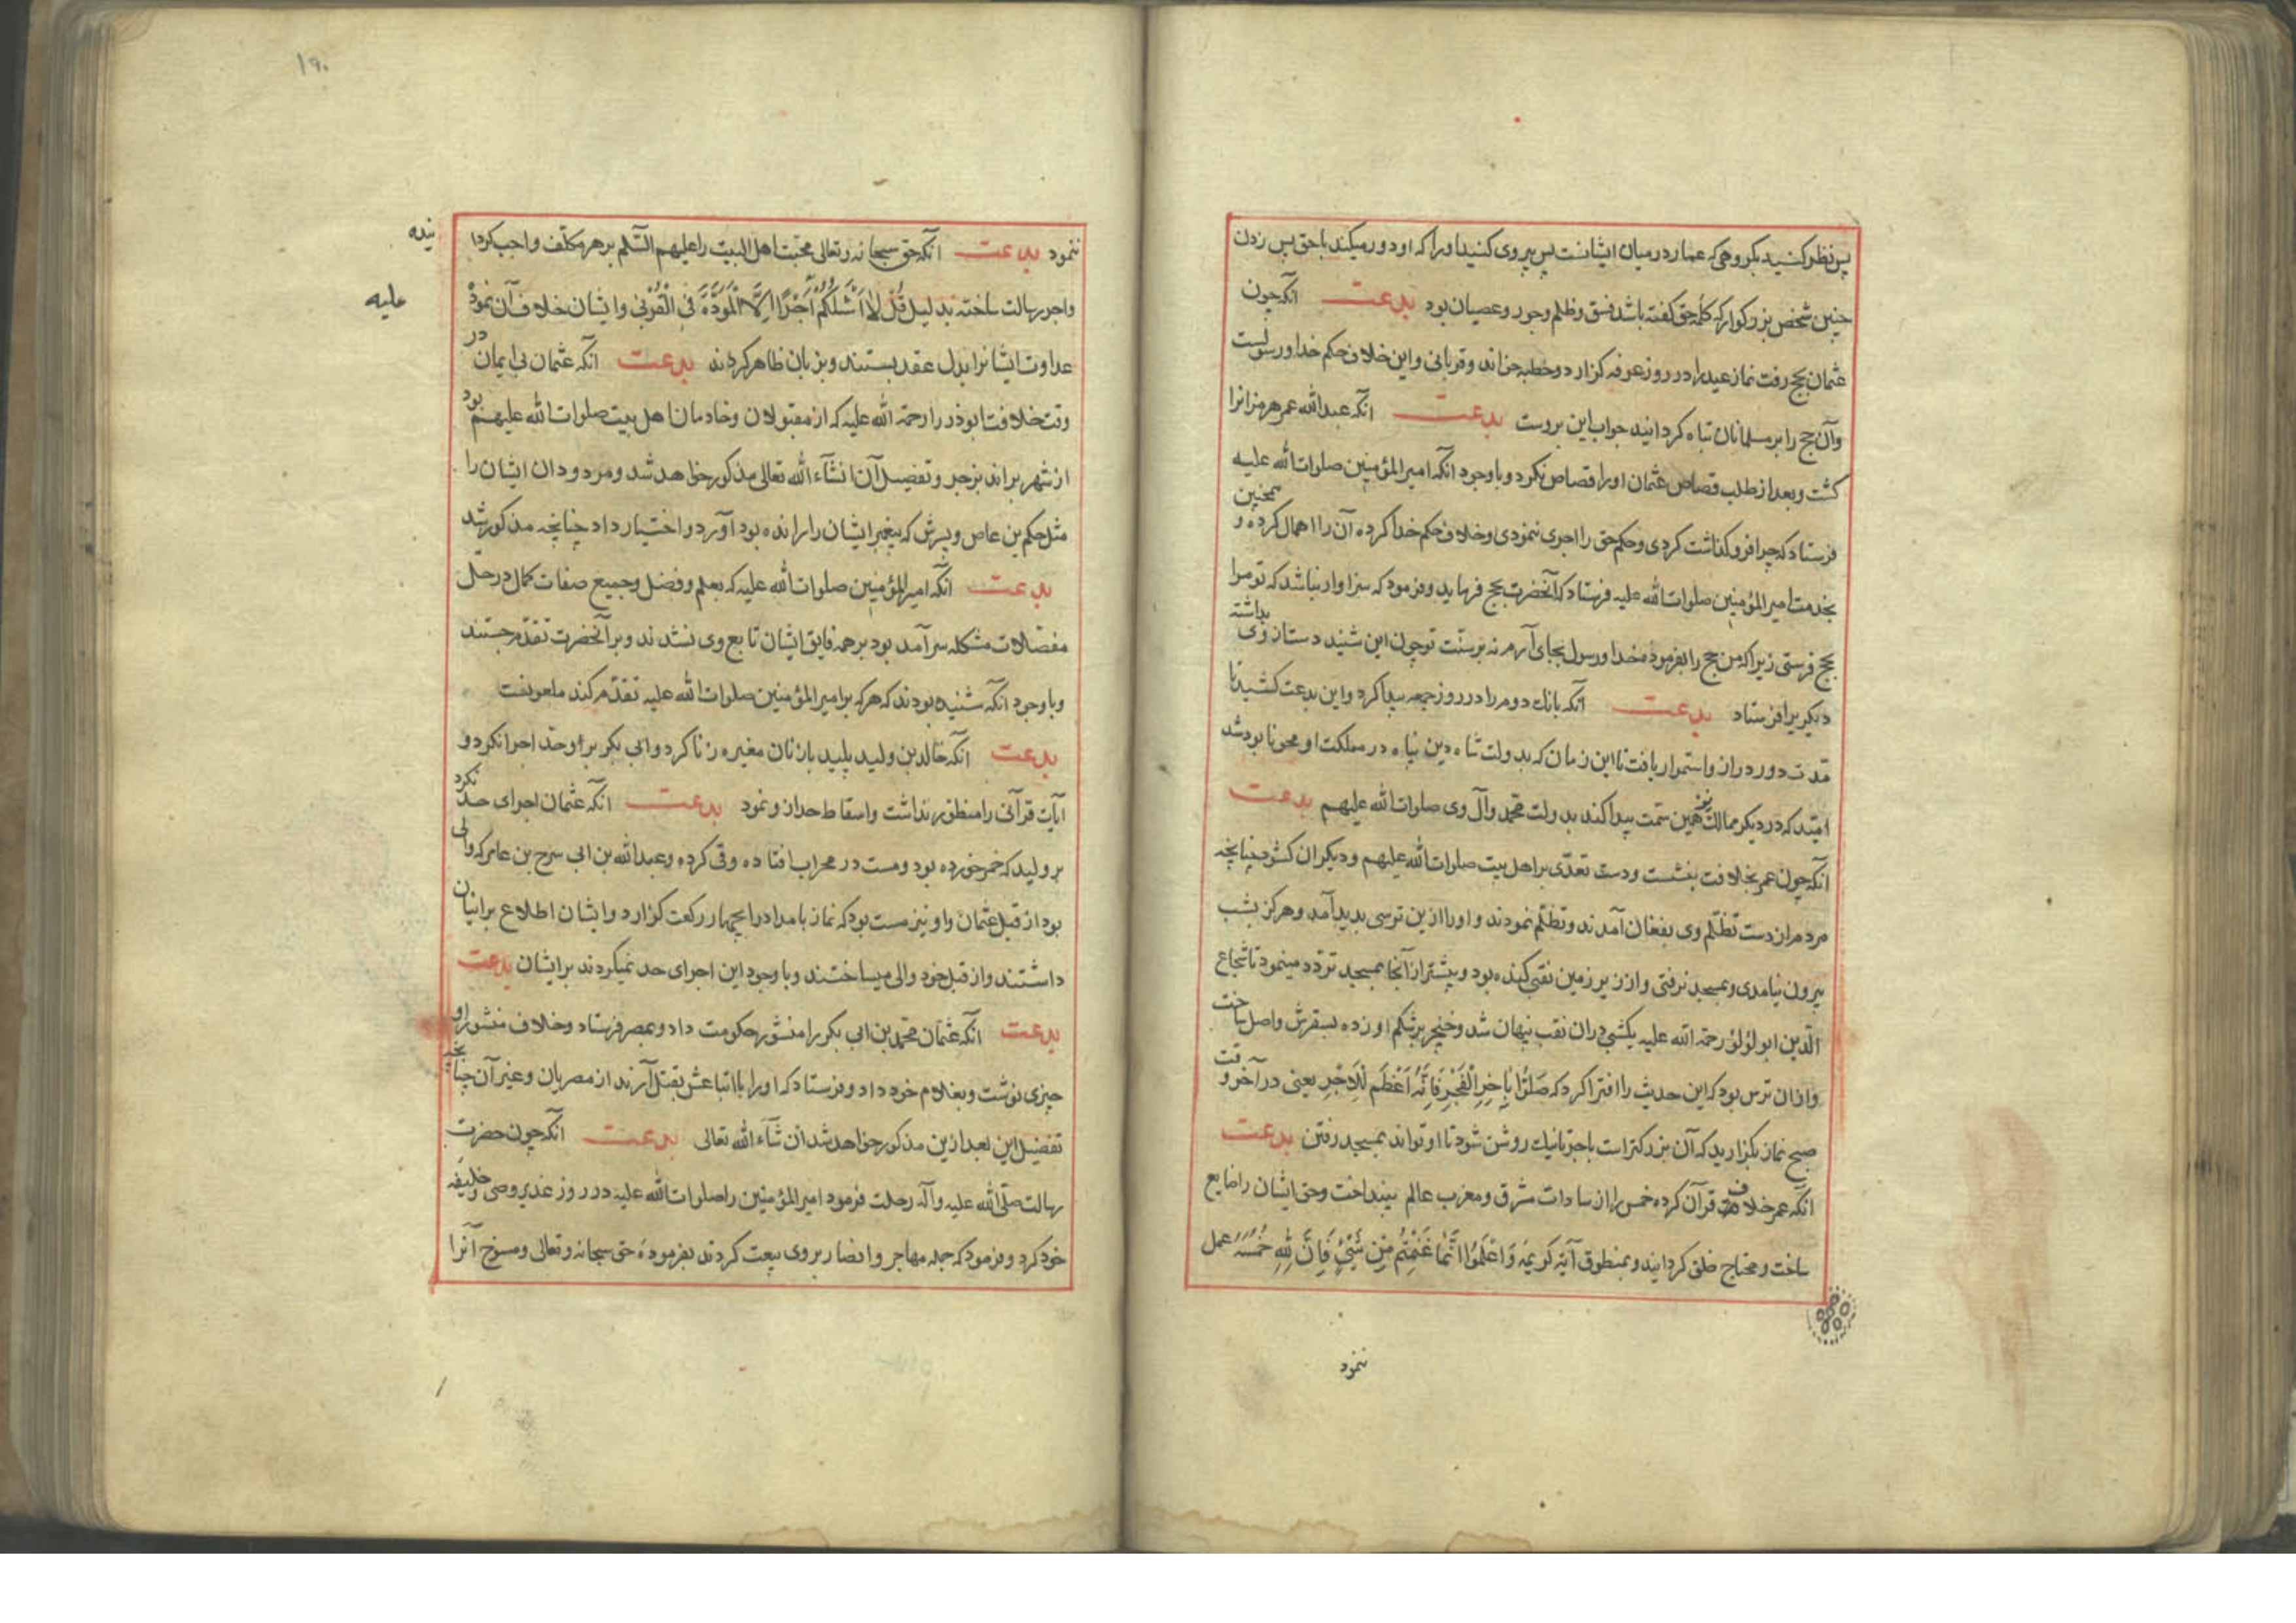 پس نظر کنید بکروهی که عمار در میان ایشانست پس پیروی کنید او را که او دور میکند با حق پس زدن
چنین شخص بزرکوار که کلمه حق کفته باشد فسق و ظلم و جور و عصیان بود بدعت انکه چون
عثمان بحج رفت نماز عید را در روز عرفه کزارد و خطبه خواند و قربانی و این خلاف حکم خدا و رسولست
و آن حج را بر مسلمانان تباه کردانید جواب این بروست بدعت انکه عبدالله عمر هرمزانرا
کشت و بعد از طلب قصاص عثمان او را قصاص نکرد و با وجود انکه امیر المؤمنین صلوات الله علیه
فرستاد که چرا فرو کذاشت کردی و حکم حق را اجری ننمودی و خلاف حکم خدا کرده آن را اهمال کرده و همچنین
بخدمت امیر المؤمنین صلوات الله علیه فرستاد که آنحضرت بحج فرماید و فرمود که سزاوار نباشد که تو مرا
بحج فرستی زیرا که من حج را بفرموده خدا و رسول بجای آرم نه بر سنت تو چون این شنید دست از وی بداشته
دیکریرا فرستاد بدعت انکه بانک دوم را در روز جمعه پیدا کرد و این بدعت کشید تا
مدت دور دراز و استمرار یافت تا این زمان که بدولت شاه دین پناه در مملکت او محو نابود شد
امید که در دیکر ممالک نیز همین سمت پیدا کند بدولت محمد و آل وی صلوات الله علیهم بدعت
انکه چون عمر بخلافت بنشست و دست تعدی بر اهل بیت صلوات الله علیهم و دیکران کشود چنانچه
مردم از دست تظلم وی بفغان آمدند و تظلم نمودند و او را ازین ترسی بدید آمد و هرکز بشب
بیرون نیامدی و بمسجد نرفتی و از زیر زمین نقبی کنده بود و بیشتر از آنجا بمسجد تردد مینمود تا شجاع
الدین ابو لؤلؤ رحمة الله علیه یکشبی دران نقب پنهان شد و خنجر بر شکم او زده بسقرش واصل ساخت
و از ان ترس بود که این حدیث را افترا کرد که صَلُّوا بِاٰخِرِ الْفَجْرِ فَاِنَّهُ اَعْظَم لِلاَجْرِ یعنی در آخر وقت
صبح نماز بکزارید که آن بزرکتر است باجر تا نیک روشن شود تا او تواند بمسجد رفتن بدعت
انکه عمر خلاف قرآن کرده خمس را از سادات مشرق و مغرب عالم بینداخت و حق ایشان را ضایع
ساخت و محتاج خلق کردانید و بمنطوق آیه کریمه وَاعْلَمُوا اَنَّمَا غَنِمْتُم مِّن شَیْءٍ فَاَنَّ لِلّٰهِ خُمُسَهُ عمل
ننمود
١٩٠
ننمود بدعت انکه حق سبحانه و تعالی محبت اهل البیت را علیهم السلم بر هر مکلف واجب کردا
نیده
و اجر رسالت ساخته بدلیل قُلْ لاٰ اَسْئَلُکُمْ اَجْرًا اِلاَّ الْمَوَدَّةَ فِی الْقُرْبٰی و ایشان خلاف آن نموده
علیه
عداوت ایشانرا بدل عقد بستند و بزبان ظاهر کردند بدعت انکه عثمان بی ایمان در
وقت خلافت ابوذر را رحمة الله علیه که از مقبولان و خادمان اهل بیت صلوات الله علیهم بود
از شهر براند بزجر و تفصیل آن انشآء الله تعالی مذکور خواهد شد و مردودان ایشان را
مثل حکم بن عاص و پسرش که پیغمبر ایشان را رانده بود آورد و اختیار داد چنانچه مذکور شد
بدعت انکه امیر المؤمنین صلوات الله علیه که بعلم و فضل و جمیع صفات کمال در حل
معضلات مشکله سرآمد بود بر همه فایق ایشان تابع وی نشدند و بر آنحضرت تقدم جستند
و با وجود انکه شنیده بودند که هر که بر امیر المؤمنین صلوات الله علیه تقدم کند ملعونست
بدعت انکه خالد بن ولید پلید با زنان مغیره زنا کرد و ابی بکر بر او حد اجرا نکرد و
آیات قرآنی را منظور نداشت و اسقاط حد از و نمود بدعت انکه عثمان اجرای حد نکرد
بر ولید که خمر خورده بود و مست در محراب افتاده و قی کرده و عبدالله بن ابی سرح بن عامر که والی
بود از قبل عثمان و او نیز مست بود که نماز بامداد را بچهار رکعت کزارد و ایشان اطلاع بر اینان
داشتند و از قبل خود والی میساختند و با وجود این اجرای حد نمیکردند بر ایشان بدعت
بدعت انکه عثمان محمد بن ابی بکر را منشور حکومت داد و بمصر فرستاد و خلاف منشور او
چیزی نوشت و بغلام خود داد و فرستاد که او را با اتباعش بقتل آرند از مصریان و غیر آن چنانچه
تفصیل این بعد ازین مذکور خواهد شد ان شآء الله تعالی بدعت انکه چون حضرت
رسالت صلی الله علیه و آله رحلت فرمود امیر المؤمنین را صلوات الله علیه در روز غدیر وصی و خلیفه
خود کرد و فرمود که جمله مهاجر و انصار بر وی بیعت کردند بفرموده حق سبحانه و تعالی و منسوخ آنرا